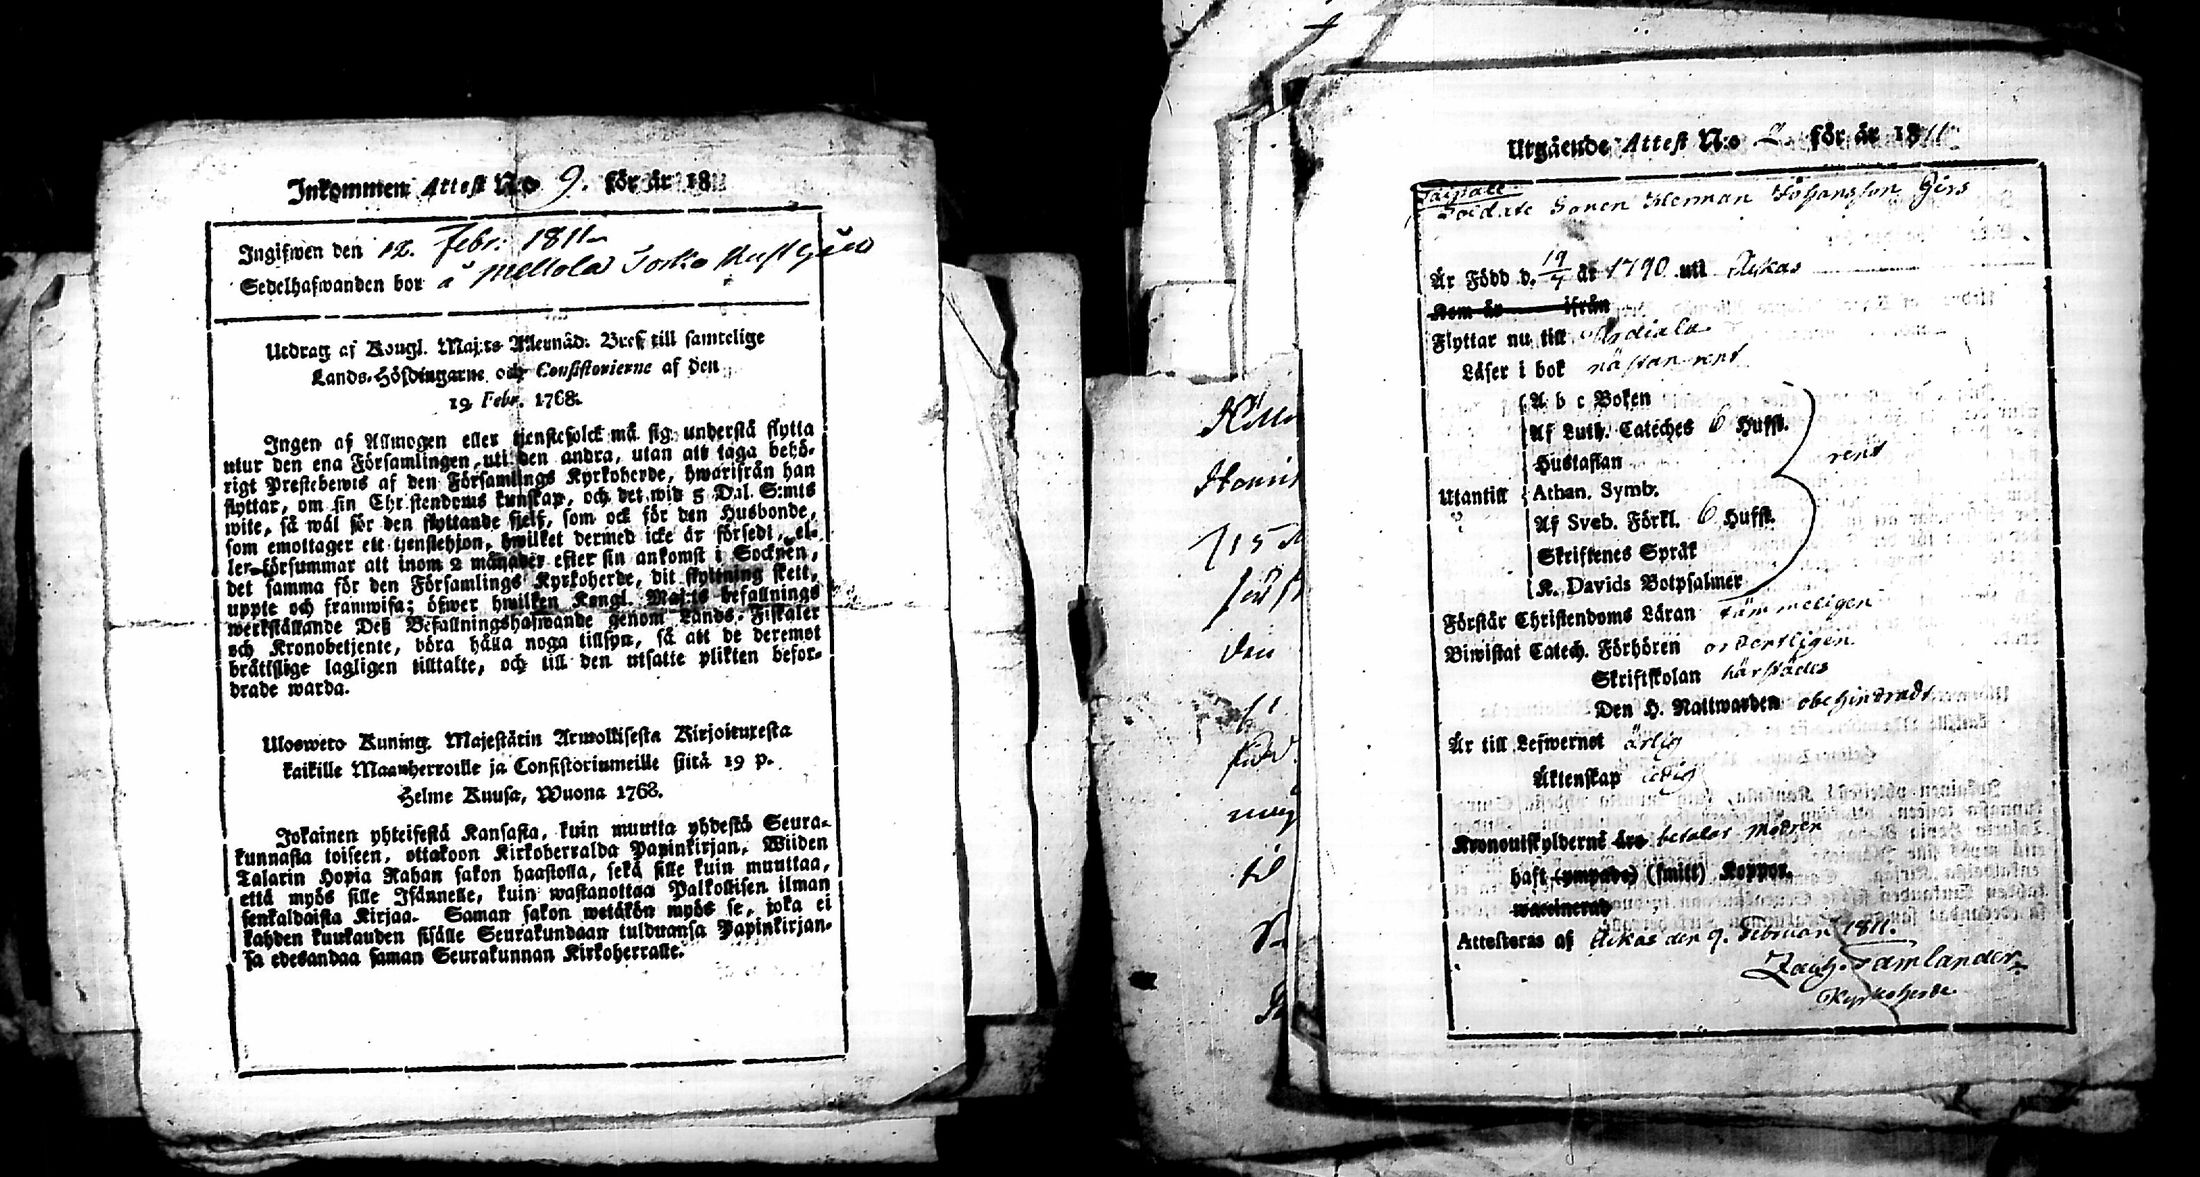 Inkommen Attest N:o 9. för år 1811
Ingifwen den 12. Febr. 1811
Sedelhafwanden bor å Mellola
Utdrag af Kongl. Maj:ts Allernåd: Bref till samtelige
Lands-Höfdingarne och Consistorierne af den
19 Febr. 1768.
Ingen af Allmogen eller tjenstefolck må sig understå flytta
utur den ena Församlingen uti den andra, utan att taga behö-
rigt Prestebewis af den Församlings Kyrkoherde, hwarifrån han
flyttar, om sin Christendoms kunskap, och det wid 5 Dal. S:mts
wite, så wäl för den flyttande sjelf, som ock för den Husbonde,
som emottager ett tjenstehjon, hwilket dermed icke är försedt, el-
ler försummar att inom 2 månader efter sin ankomst i Socknen,
det samma för den Församlings Kyrkoherde, dit flyttning skett,
uppte och framwisa; öfwer hwilken Kongl. Maj:ts befallnings
werkställande Deß Befallningshafwande genom Lands-Fiskaler
och Kronobetjente, böra hålla noga tillsyn, så att de deremot
bråttslige lagligen tilltalte, och till den utsatte plikten befor-
drade warda.
Ulosweto Kuning. Majestätin Armollisesta Kirjoituxesta
kaikille Maanherroille ja Consistoriumeille siitä 19 p.
Helme Kuusa, Wuona 1768.
Jokainen yhteisestä Kansasta, kuin muutta yhdestä Seura-
kunnasta toiseen, ottakoon Kirkoherralda Papinkirjan, Wiiden
Talarin Hopia Rahan sakon haastolla, sekä sille kuin muuttaa,
että myös sille Isännelle, kuin wastanottaa Palkollisen ilman
senkaldaista Kirjaa. Saman sakon wetäkön myös se, joka ei
kahden kuukauden sisälle Seurakundaan tulduansa Papinkirjan-
sa edesandaa saman Seurakunnan Kirkoherralle.
Utgående Attest N:o 2. för år 1811
Soldate Sonen Herman Johansson Girs
Är Född d. 19/7 år 1790 uti Ackas
Kom år ifrån
Flyttar nu till
Läser i bok nästan rent
A b c Boken
Af Luth. Cateches 6 Hufst.
Hustaflan
rent
Utantill Athan. Symb.
Af Sveb. Förkl. 6 Hufst.
Skriftenes Språk
K. Davids Botpsalmer
Förstår Christendoms Läran tämmeligen
Biwistat Catech. Förhören ordentligen
Skriftskolan härstädes
Den H. Nattwarden obehindradt
Är till Lefwernet ärlig
Äktenskap ledig
Kronoutskylderne äro betalar Modren
haft (ympade) (smitt) Koppor.
waccinerad
Attesteras af Ackas den 9. Februar 1811.
Zach. Tamlander
Kyrkoherde